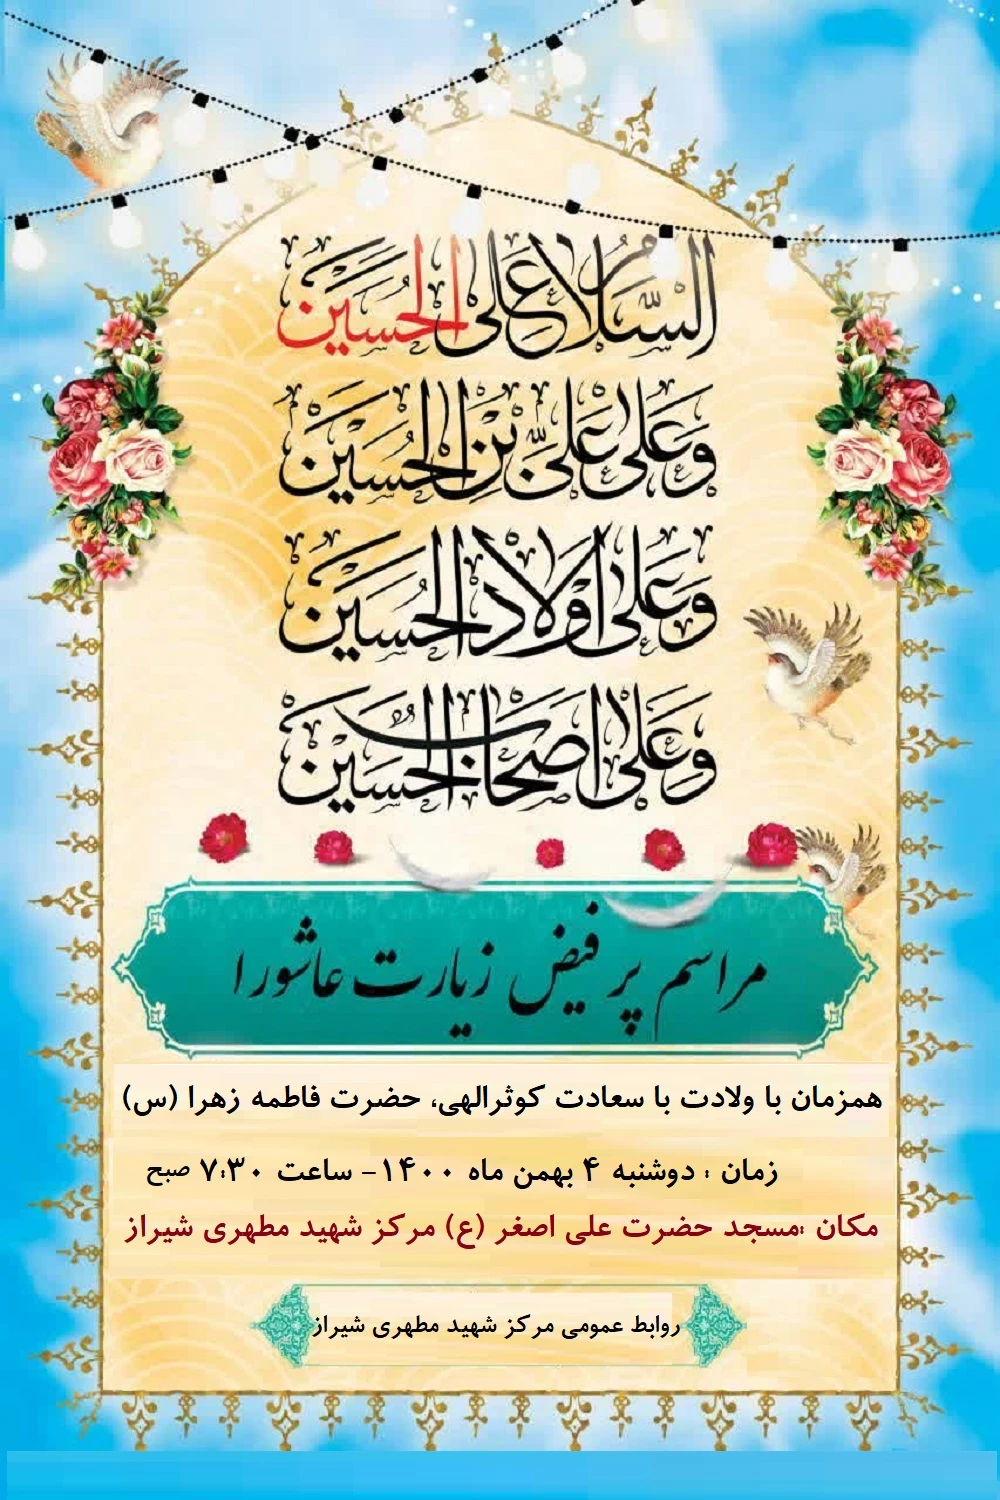 السَّلامُ عَلَى الحُسَين
وَعَلى عَلىِّ بْنِ الحُسَين
وَعَلى اَولادِ الحُسَين
وَعَلى اَصحابِ الحُسَين
مراسم پرفیض زیارت عاشورا
همزمان با ولادت با سعادت کوثرالهی، حضرت فاطمه زهرا (س)
زمان : دوشنبه ۴ بهمن ماه ۱۴۰۰- ساعت ۷:۳۰ صبح
مکان :مسجد حضرت علی اصغر (ع) مرکز شهید مطهری شیراز
روابط عمومی مرکز شهید مطهری شیراز